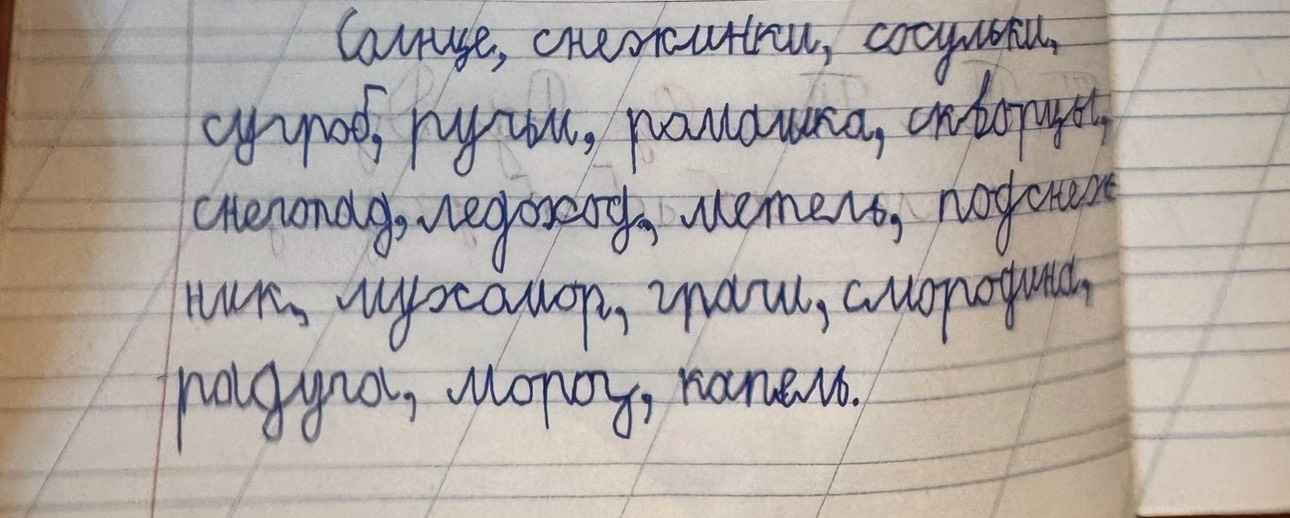 Солнце, снежинки, сосульки,
сугроб, ручьи, рамашка, скворцы,
снегопад, ледоход, метель, подснеж
ник, мухомор, грачи, смородина,
радуга, мороз, капель.